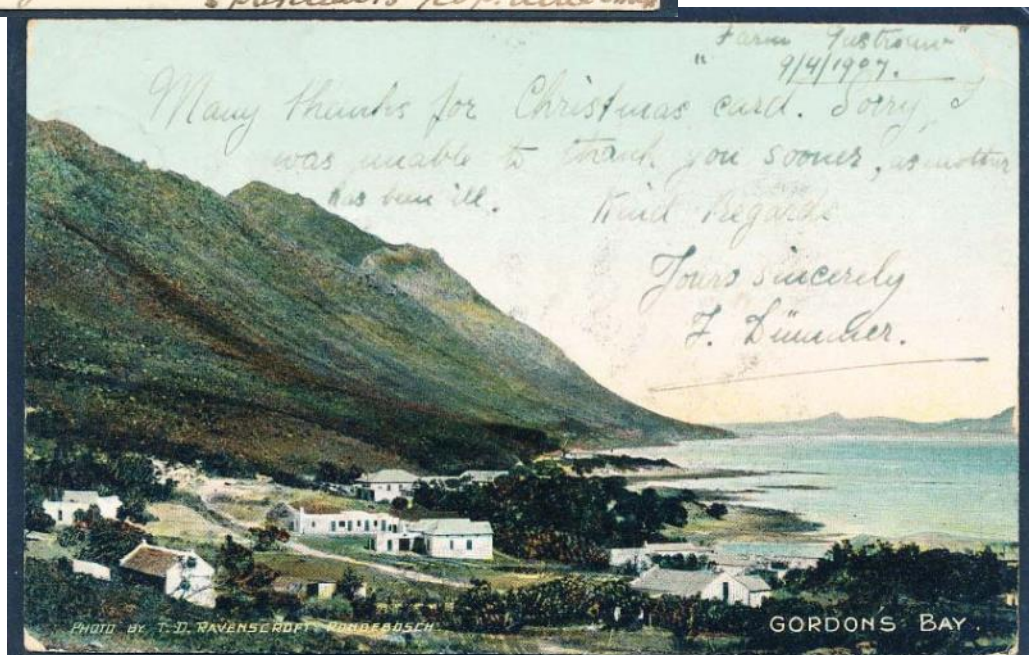 "Farm
9/4/1907.
Many thanks for Christmas card. Sorry, I
was unable to thank you sooner, as mother
has been ill. Kind Regards
Yours sincerely
F. Dümmer.
PHOTO BY T. D. RAVENSCROFT. RONDEBOSCH.
GORDON'S BAY.